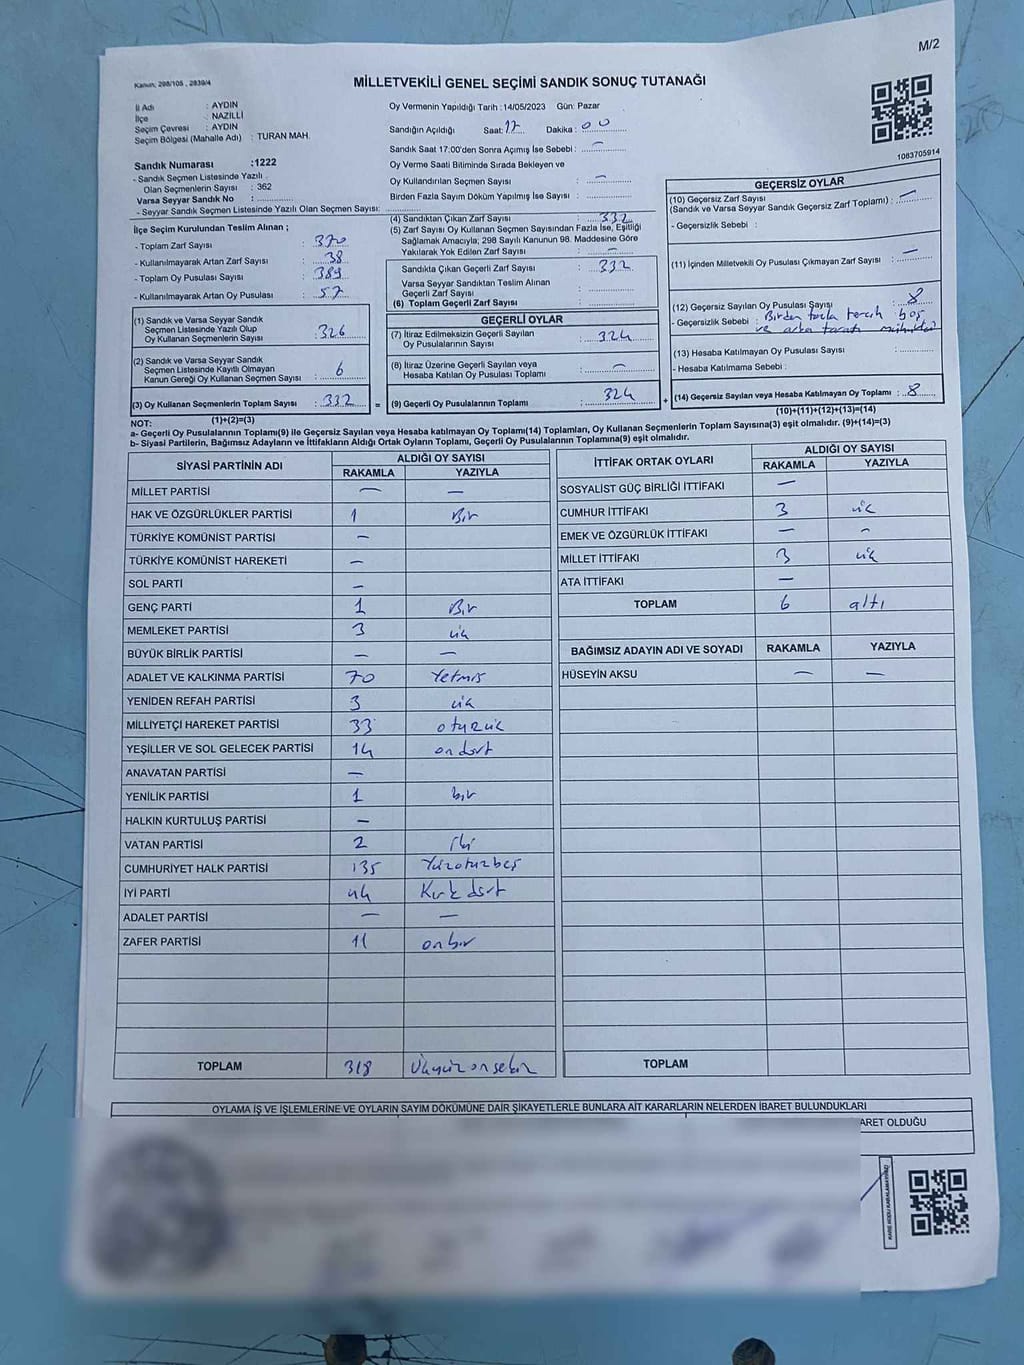 M/2
Kanun; 298/105 , 2839/4
MİLLETVEKİLİ GENEL SEÇİMİ SANDIK SONUÇ TUTANAĞI
İl Adı : AYDIN
İlçe : NAZİLLİ
Seçim Çevresi : AYDIN
Seçim Bölgesi (Mahalle Adı) : TURAN MAH.
Sandık Numarası :1222
- Sandık Seçmen Listesinde Yazılı
Olan Seçmenlerin Sayısı : 362
Varsa Seyyar Sandık No :
- Seyyar Sandık Seçmen Listesinde Yazılı Olan Seçmen Sayısı:
İlçe Seçim Kurulundan Teslim Alınan ;
- Toplam Zarf Sayısı : 370
- Kullanılmayarak Artan Zarf Sayısı : 38
- Toplam Oy Pusulası Sayısı : 389
- Kullanılmayarak Artan Oy Pusulası : 57
(1) Sandık ve Varsa Seyyar Sandık
Seçmen Listesinde Yazılı Olup
Oy Kullanan Seçmenlerin Sayısı : 326
(2) Sandık ve Varsa Seyyar Sandık
Seçmen Listesinde Kayıtlı Olmayan
Kanun Gereği Oy Kullanan Seçmen Sayısı : 6
(3) Oy Kullanan Seçmenlerin Toplam Sayısı : 332 =
(1)+(2)=(3)
Oy Vermenin Yapıldığı Tarih : 14/05/2023 Gün: Pazar
Sandığın Açıldığı Saat: 17 Dakika : 00
Sandık Saat 17:00'den Sonra Açımış İse Sebebi : —
Oy Verme Saati Bitiminde Sırada Bekleyen ve
Oy Kullandırılan Seçmen Sayısı : —
Birden Fazla Sayım Döküm Yapılmış İse Sayısı :
(4) Sandıktan Çıkan Zarf Sayısı : 332
(5) Zarf Sayısı Oy Kullanan Seçmen Sayısından Fazla İse, Eşitliği
Sağlamak Amacıyla; 298 Sayılı Kanunun 98. Maddesine Göre
Yakılarak Yok Edilen Zarf Sayısı : —
Sandıkta Çıkan Geçerli Zarf Sayısı : 332
Varsa Seyyar Sandıktan Teslim Alınan
Geçerli Zarf Sayısı :
(6) Toplam Geçerli Zarf Sayısı :
GEÇERLİ OYLAR
(7) İtiraz Edilmeksizin Geçerli Sayılan
Oy Pusulalarının Sayısı : 324
(8) İtiraz Üzerine Geçerli Sayılan veya
Hesaba Katılan Oy Pusulası Toplamı : —
(9) Geçerli Oy Pusulalarının Toplamı : 324 +
1083705914
GEÇERSİZ OYLAR
(10) Geçersiz Zarf Sayısı
(Sandık ve Varsa Seyyar Sandık Geçersiz Zarf Toplamı) : —
- Geçersizlik Sebebi :
(11) İçinden Milletvekili Oy Pusulası Çıkmayan Zarf Sayısı : —
(12) Geçersiz Sayılan Oy Pusulası Sayısı : 8
- Geçersizlik Sebebi : Birden fazla tercih boş
ve arka tarafı
(13) Hesaba Katılmayan Oy Pusulası Sayısı :
- Hesaba Katılmama Sebebi :
(14) Geçersiz Sayılan veya Hesaba Katılmayan Oy Toplamı : 8
(10)+(11)+(12)+(13)=(14)
NOT:
a- Geçerli Oy Pusulalarının Toplamı(9) ile Geçersiz Sayılan veya Hesaba katılmayan Oy Toplamı(14) Toplamları, Oy Kullanan Seçmenlerin Toplam Sayısına(3) eşit olmalıdır. (9)+(14)=(3)
b- Siyasi Partilerin, Bağımsız Adayların ve İttifakların Aldığı Ortak Oyların Toplamı, Geçerli Oy Pusulalarının Toplamına(9) eşit olmalıdır.
SİYASİ PARTİNİN ADI ALDIĞI OY SAYISI
RAKAMLA YAZIYLA
MİLLET PARTİSİ — —
HAK VE ÖZGÜRLÜKLER PARTİSİ 1 Bir
TÜRKİYE KOMÜNİST PARTİSİ —
TÜRKİYE KOMÜNİST HAREKETİ —
SOL PARTİ —
GENÇ PARTİ 1 Bir
MEMLEKET PARTİSİ 3 üç
BÜYÜK BİRLİK PARTİSİ — —
ADALET VE KALKINMA PARTİSİ 70 Yetmiş
YENİDEN REFAH PARTİSİ 3 üç
MİLLİYETÇİ HAREKET PARTİSİ 33 otuzüç
YEŞİLLER VE SOL GELECEK PARTİSİ 14 ondört
ANAVATAN PARTİSİ —
YENİLİK PARTİSİ 1 bir
HALKIN KURTULUŞ PARTİSİ —
VATAN PARTİSİ 2 iki
CUMHURİYET HALK PARTİSİ 135 Yüzotuzbeş
İYİ PARTİ 44 Kırkdört
ADALET PARTİSİ — —
ZAFER PARTİSİ 11 onbir
TOPLAM 318 Üçyüzonsekiz
İTTİFAK ORTAK OYLARI ALDIĞI OY SAYISI
RAKAMLA YAZIYLA
SOSYALİST GÜÇ BİRLİĞİ İTTİFAKI —
CUMHUR İTTİFAKI 3 üç
EMEK VE ÖZGÜRLÜK İTTİFAKI — —
MİLLET İTTİFAKI 3 üç
ATA İTTİFAKI —
TOPLAM 6 altı
BAĞIMSIZ ADAYIN ADI VE SOYADI RAKAMLA YAZIYLA
HÜSEYİN AKSU — —
TOPLAM
OYLAMA İŞ VE İŞLEMLERİNE VE OYLARIN SAYIM DÖKÜMÜNE DAİR ŞİKAYETLERLE BUNLARA AİT KARARLARIN NELERDEN İBARET BULUNDUKLARI
ARET OLDUĞU